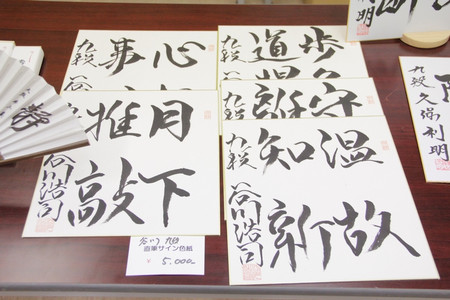 心
事
九段
歩
道
九段
守
九段
利明
九段 久保利明
月下
推敲
九段 谷川浩司
温故
知新
九段 谷川浩司
谷川 九段
直筆サイン色紙
¥ 5,000-